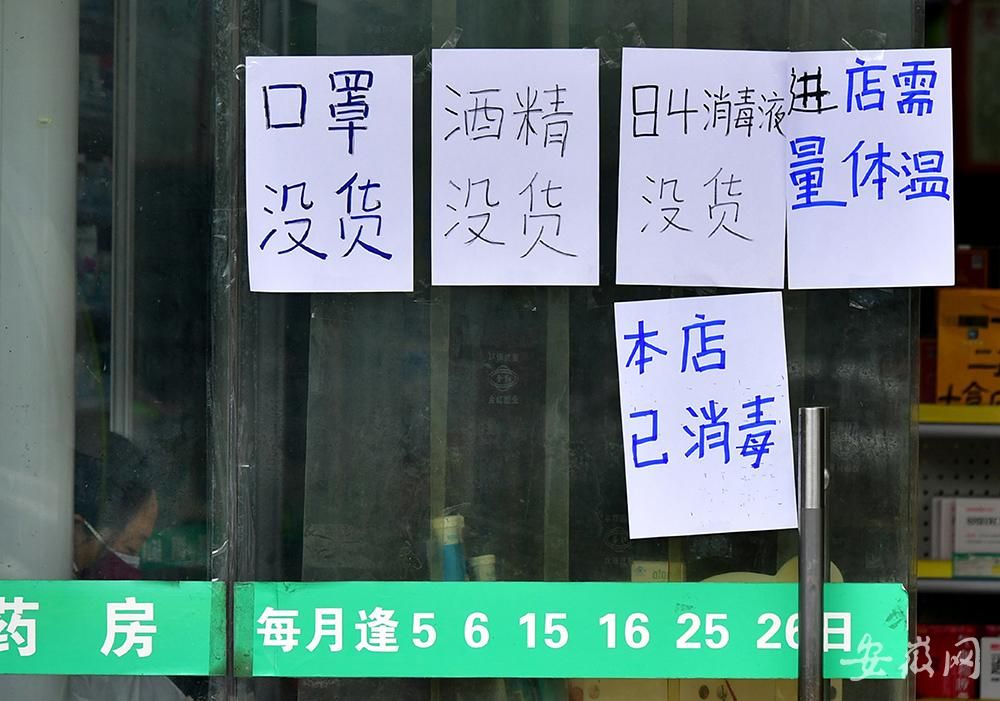 口罩
没货
酒精
没货
84消毒液
没货
进店需
量体温
本店
已消毒
药房
每月逢5 6 15 16 25 26日
安徽网